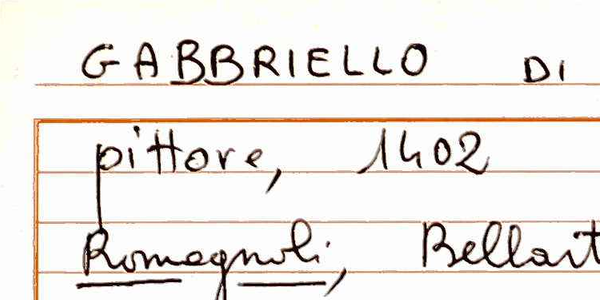 GABBRIELLO DI
pittore, 1402
Romagnoli, Bellart